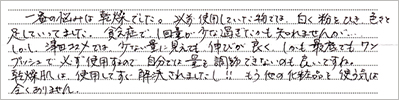 一番の悩みは乾燥でした。必ず使用していた物では、白く粉をひき、色々と
足していってました。貧乏症で1回量が少な過ぎたのかも知れませんが…
しかし、澤田コスメでは、少ない量に見えても伸びが良く、しかも最低でもワン
プッシュで必ず使用するので、自分で量を調節できないのも良いですね。
乾燥肌は、使用してすぐ解決されました!!もう他の化粧品を使う気は
全くありません。